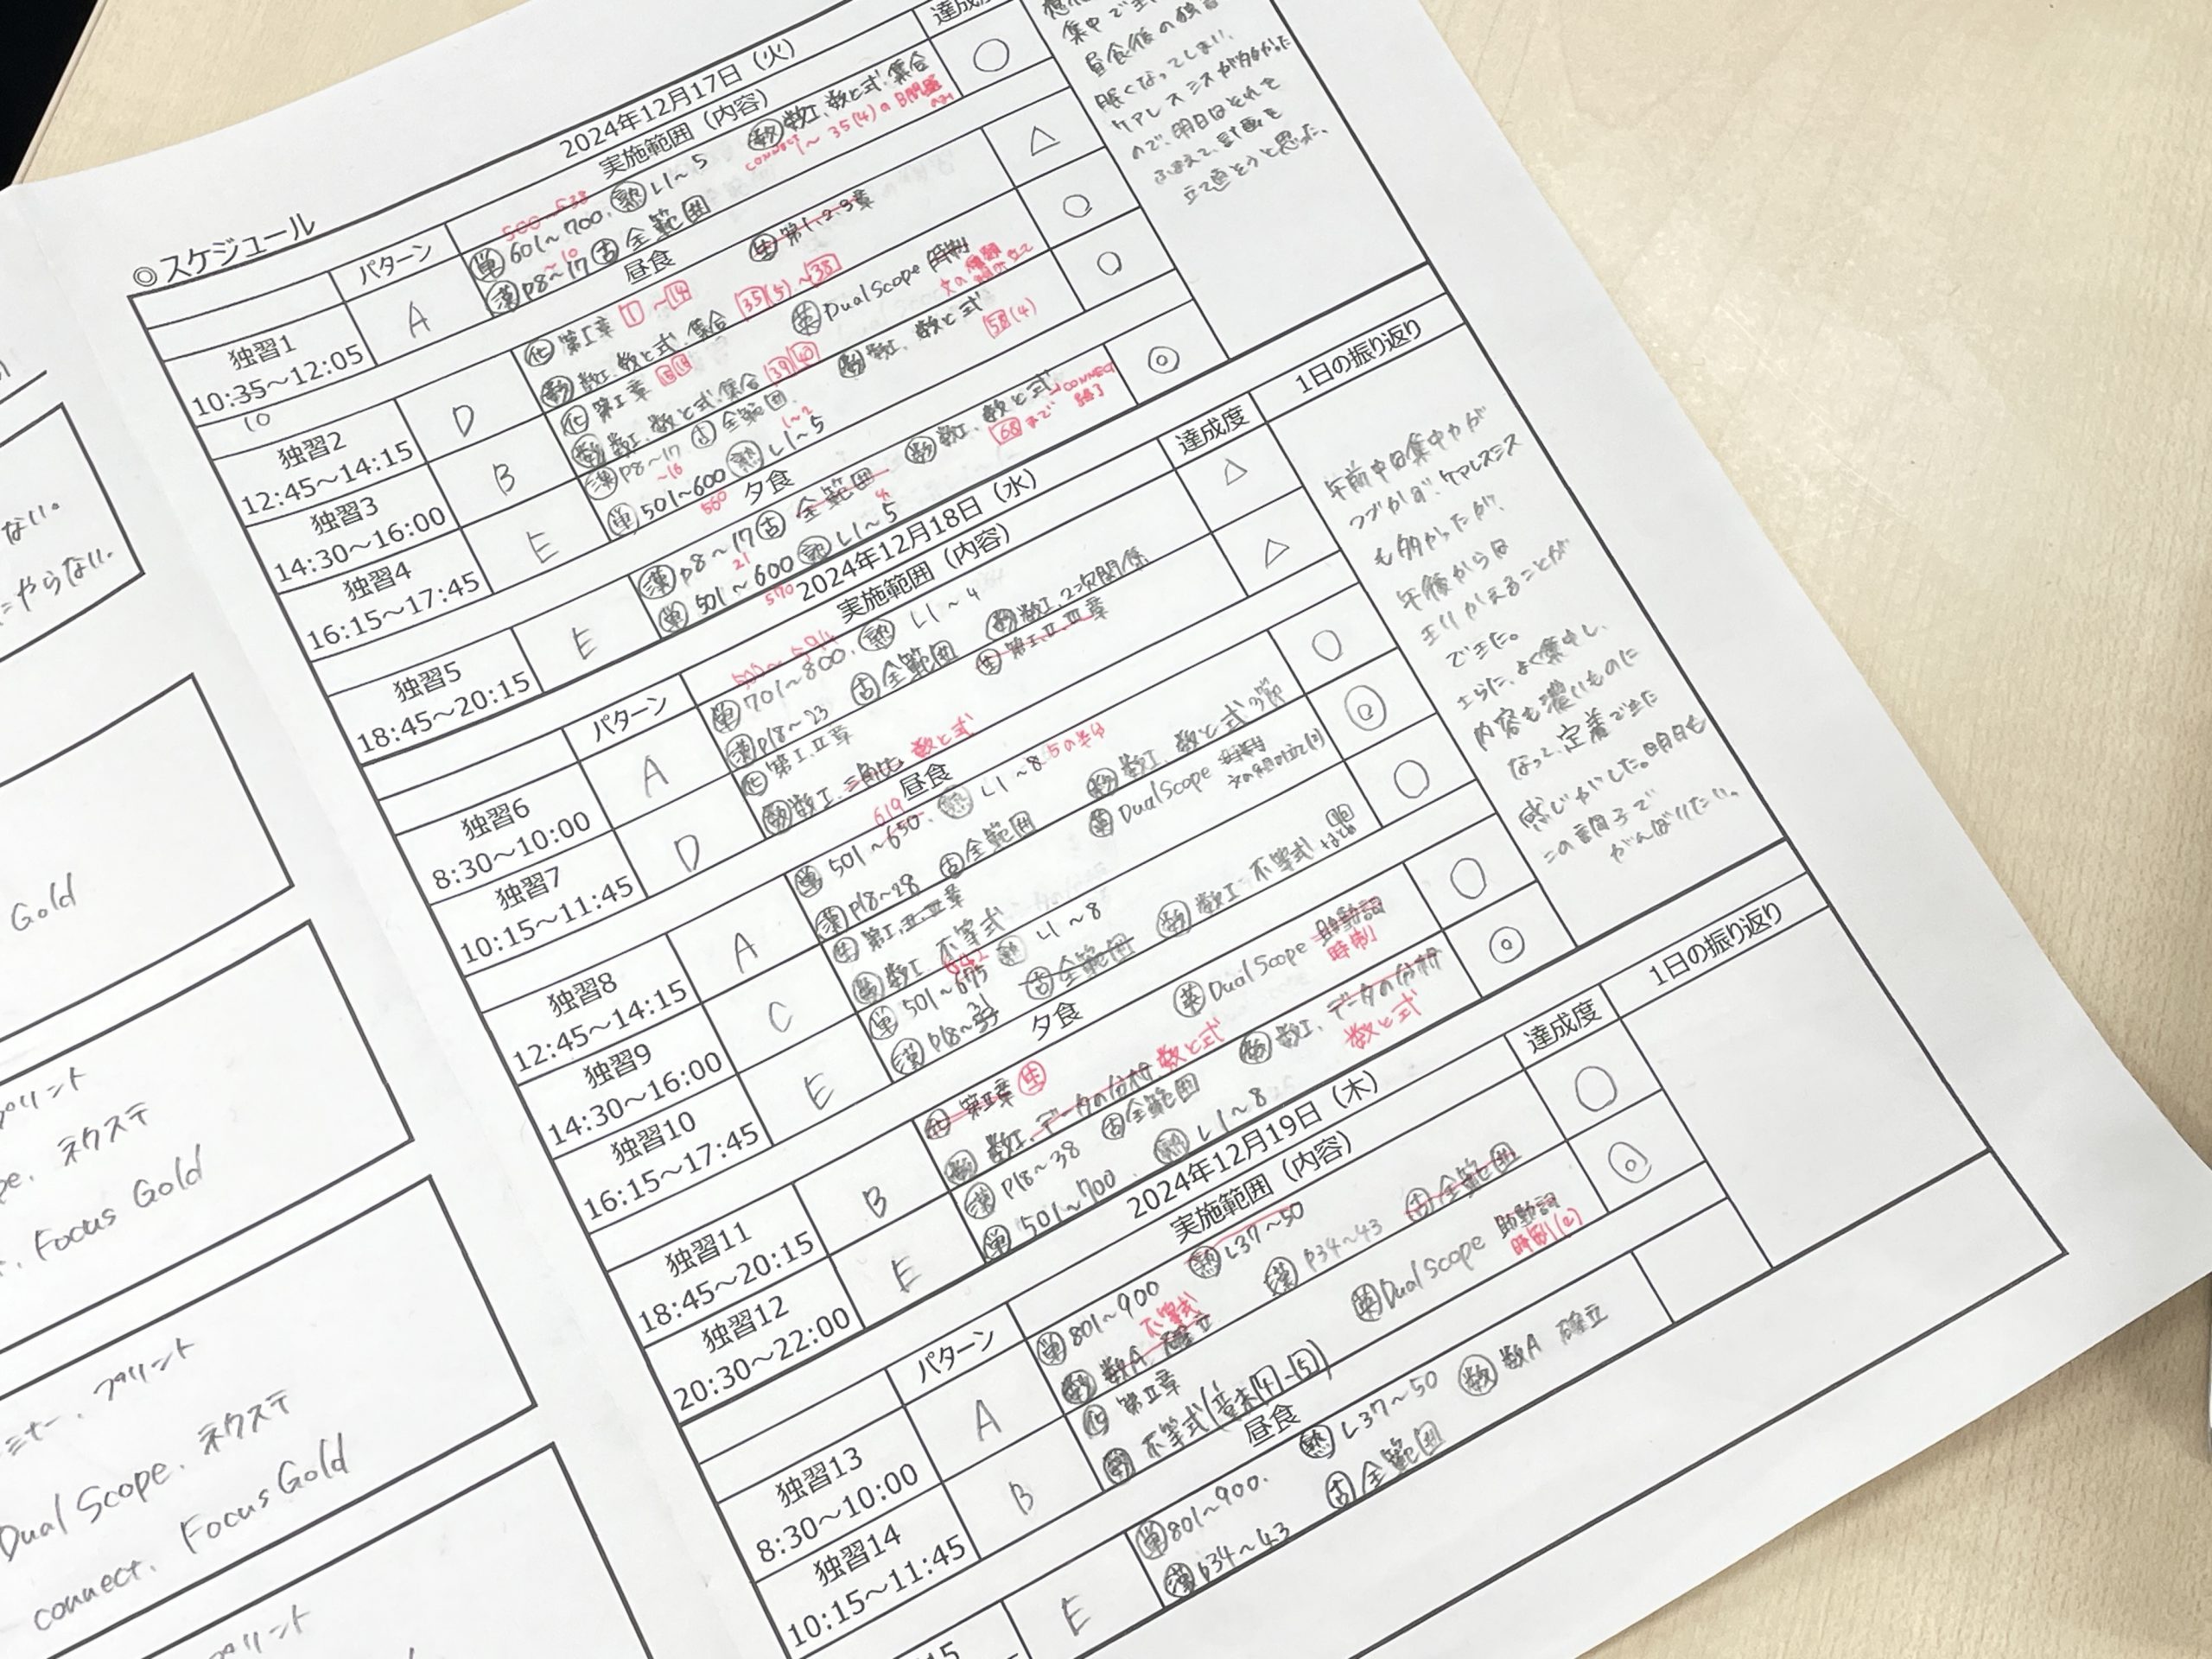 ◎スケジュール
2024年12月17日（火）
パターン
実施範囲（内容）
独習1
10:35～12:05
10
A
500～538
単 601～700. 熟 L1～5
数 数I. 数と式. 集合
CONNECT～35(4)のB問題のみ
漢 P8～17 古 全範囲
~10
○
昼食
独習2
12:45～14:15
D
化 第I章 1～14
生 第1.2.3章
数 数I. 数と式. 集合 35(5)～38
△
独習3
14:30～16:00
B
化 第I章
英 Dual Scope 時制
数 数I. 数と式. 集合 39 40
○
独習4
16:15～17:45
E
漢 P8～17 古 全範囲
~16
数 数I. 数と式
58(4)
単 501～600 熟 L1～5
1～2
550
○
夕食
独習5
18:45～20:15
E
漢 P8～17 古 全範囲
21
数 数I. 数と式
68まで
CONNECT終了
単 501～600 熟 L1～5
570
4
◎
集中で
昼食後の独習
眠くなってしまい、
ケアレスミスが多かった
ので、明日はそれを
ふまえて、計画を
立て直そうと思った。
2024年12月18日（水）
パターン
実施範囲（内容）
達成度
1日の振り返り
独習6
8:30～10:00
A
単 701～800. 熟 L1～4
漢 P18～23 古 全範囲
数 数I. 2次関係
△
独習7
10:15～11:45
D
化 第I.II章
生 第I.II.III章
数 数I. 三角比 数と式
△
昼食
独習8
12:45～14:15
A
単 501～650. 熟 L1～8
619
5の半分
漢 P18～28 古 全範囲
数 数I. 数と式 3節
○
独習9
14:30～16:00
C
生 第I.II.III章
英 Dual Scope 時制
数 数I 不等式
◎
独習10
16:15～17:45
E
単 501～675 熟 L1～8
642
漢 P18～33 古 全範囲
31
数 数I. 不等式
○
夕食
独習11
18:45～20:15
B
化 第II章 生
英 Dual Scope 助動詞
時制
数 数I. データの分析 数と式
○
独習12
20:30～22:00
E
漢 P18～38 古 全範囲
数 数I. データの分析
数と式
単 501～700. 熟 L1～8
◎
午前中は集中力が
つづかず、ケアレスミス
も多かったが、
午後からは
きりかえることが
できた。
さらに、よく集中し、
内容も濃いものに
なって、定着できた
感じがした。明日も
この調子で
がんばりたい。
2024年12月19日（木）
パターン
実施範囲（内容）
達成度
1日の振り返り
独習13
8:30～10:00
A
単 801～900 熟 L37～50
数 数A 確立
不等式
漢 P34～43 古 全範囲
○
独習14
10:15～11:45
B
化 第II章
英 Dual Scope 助動詞
時制(2)
数 不等式(章末4-5)
◎
昼食
15
E
単 801～900. 熟 L37～50 数 数A 確立
漢 P34～43 古 全範囲
ない。
やらない。
Gold
プリント
ネクステ
Focus Gold
プリント
Dual Scope、ネクステ
connect、Focus Gold
プリント